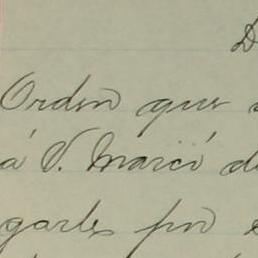 D
Orden que
á V. Marcó d
garles por